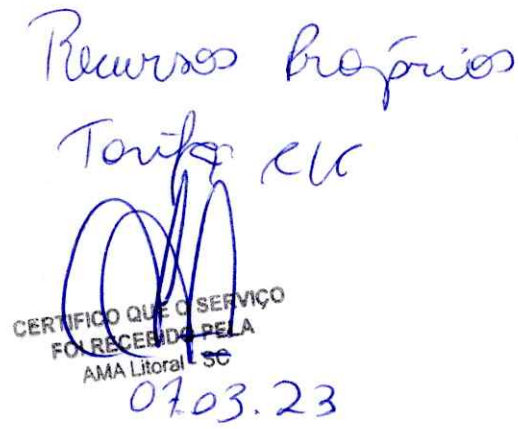 Recursos Próprios
Tarifa c/c
CERTIFICO QUE O SERVIÇO
FOI RECEBIDO PELA
AMA Litoral - SC
07.03.23